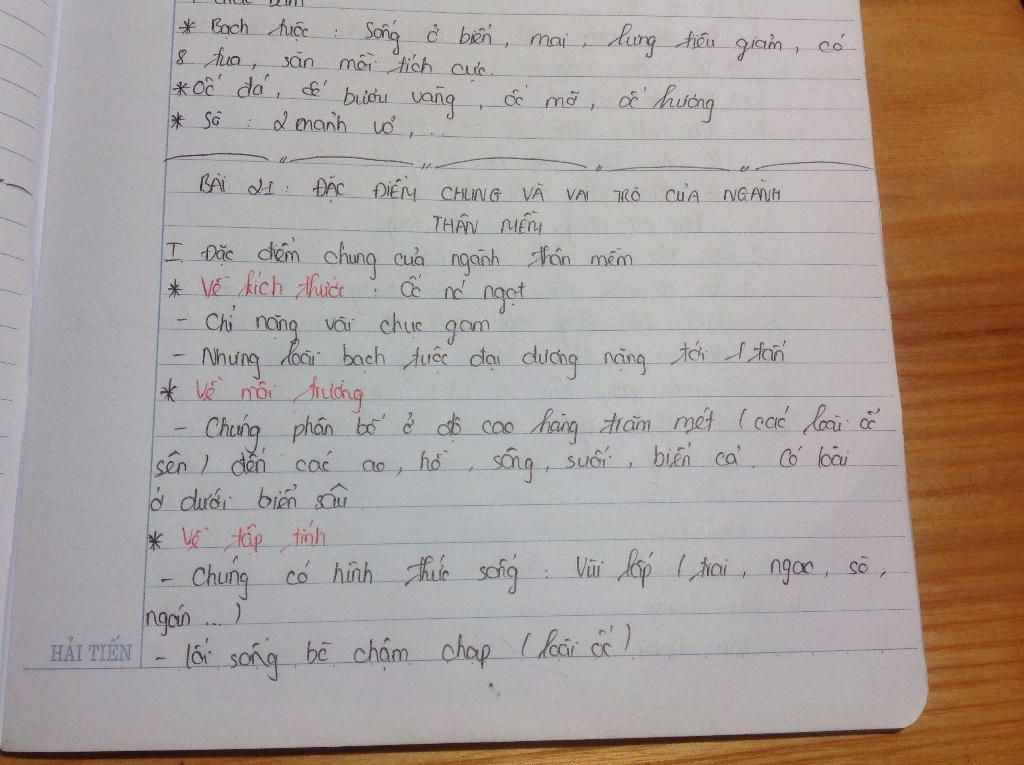 * Bạch tuộc : Sống ở biển, mai, lưng tiêu giảm, có
8 tua, săn mồi tích cực.
* Ốc đá, ốc bươu vàng, ốc mỡ, ốc hương
* Sò : 2 mảnh vỏ, ...
BÀI 21 : ĐẶC ĐIỂM CHUNG VÀ VAI TRÒ CỦA NGÀNH
THÂN MỀM
I Đặc điểm chung của ngành thân mềm
* Về kích thước : Ốc nước ngọt
- Chỉ nặng vài chục gam
- Nhưng loài bạch tuộc đại dương nặng tới 1 tấn
* Về môi trường
- Chúng phân bố ở độ cao hàng trăm mét (các loài ốc
sên) đến các ao, hồ, sông, suối, biển cả. Có loài
ở dưới biển sâu
* Về tập tính
- Chúng có hình thức sống : Vùi lấp (trai, ngao, sò,
ngán ...)
- lối sống bò chậm chạp (loài ốc)
HẢI TIẾN